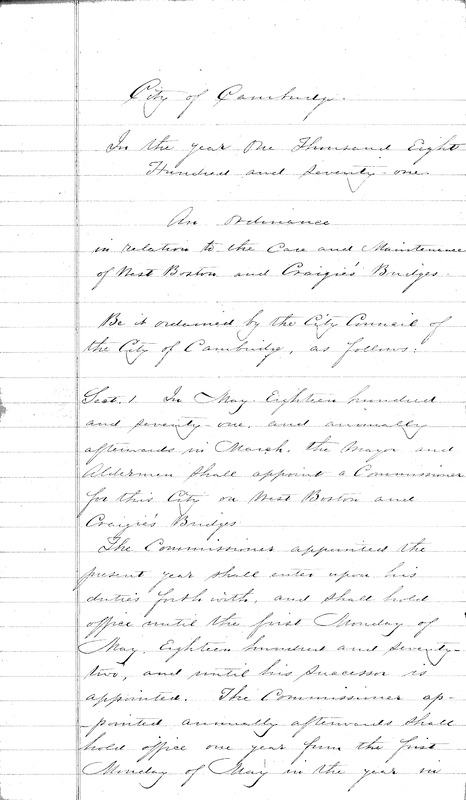 City of Cambridge.
In the year One Thousand Eight
Hundred and seventy-one.
An Ordinance
in relation to the Care and Maintenance
of West Boston and Craigie's Bridges.
Be it ordained by the City Council of
the City of Cambridge, as follows:
Sect. 1 In May Eighteen hundred
and seventy-one, and annually
afterwards in March, the Mayor and
Aldermen shall appoint a Commissioner
for this City on West Boston and
Craigie's Bridges
The Commissioner appointed the
present year shall enter upon his
duties forthwith, and shall hold
office until the first Monday of
May, Eighteen hundred and seventy-
two, and until his successor is
appointed. The Commissioner ap-
-pointed annually afterwards shall
hold office one year from the first
Monday of May in the year in